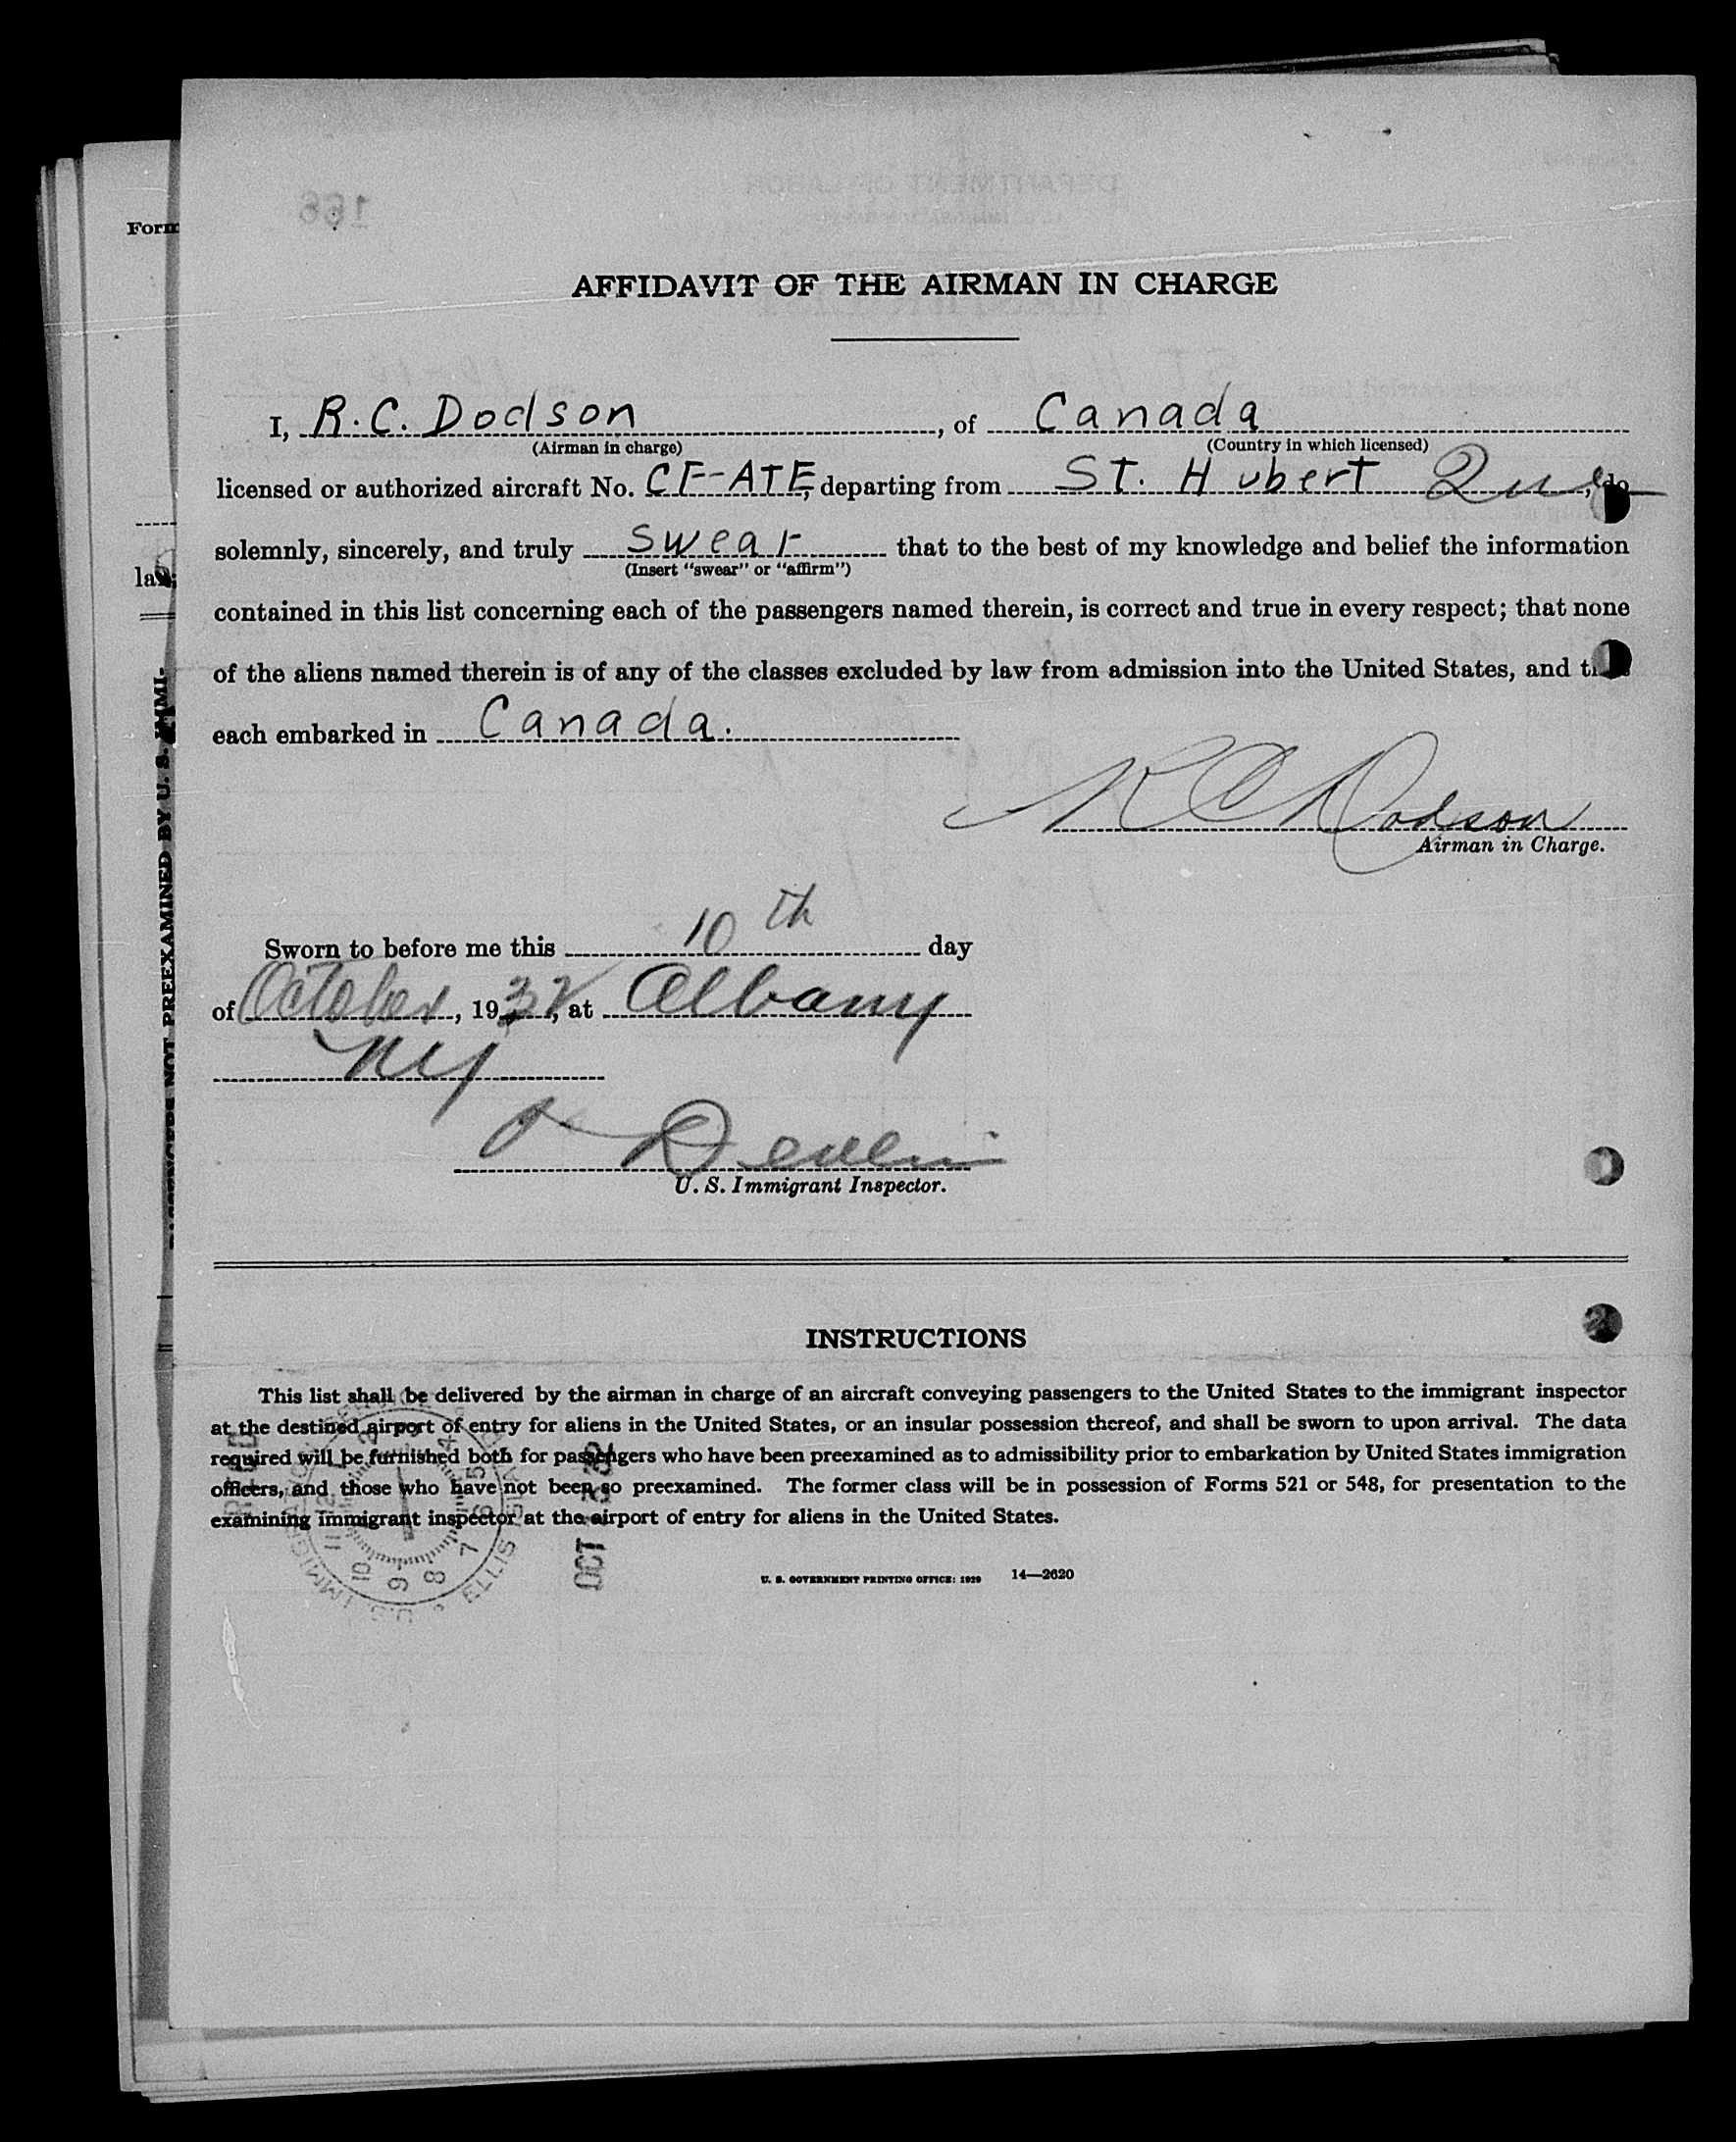 Form
AFFIDAVIT OF THE AIRMAN IN CHARGE
I, R. C. Dodson, of Canada
(Airman in charge) (Country in which licensed)
licensed or authorized aircraft No. CF-ATE, departing from ST. Hubert Que, do
solemnly, sincerely, and truly swear that to the best of my knowledge and belief the information
(Insert "swear" or "affirm")
contained in this list concerning each of the passengers named therein, is correct and true in every respect; that none
of the aliens named therein is of any of the classes excluded by law from admission into the United States, and
each embarked in Canada.
R C Dodson
Airman in Charge.
Sworn to before me this 10th day
of October, 1932, at Albany
NY
Devlin
U. S. Immigrant Inspector.
NOT PREEXAMINED BY U. S. IMMI-
INSTRUCTIONS
This list shall be delivered by the airman in charge of an aircraft conveying passengers to the United States to the immigrant inspector
at the destined airport of entry for aliens in the United States, or an insular possession thereof, and shall be sworn to upon arrival. The data
required will be furnished both for passengers who have been preexamined as to admissibility prior to embarkation by United States immigration
officers, and those who have not been so preexamined. The former class will be in possession of Forms 521 or 548, for presentation to the
examining immigrant inspector at the airport of entry for aliens in the United States.
U. S. GOVERNMENT PRINTING OFFICE: 1929 14—2620
OCT
ELLIS
2 4 5 6 7 8 9 10 11 12
166
DEPARTMENT OF LABOR